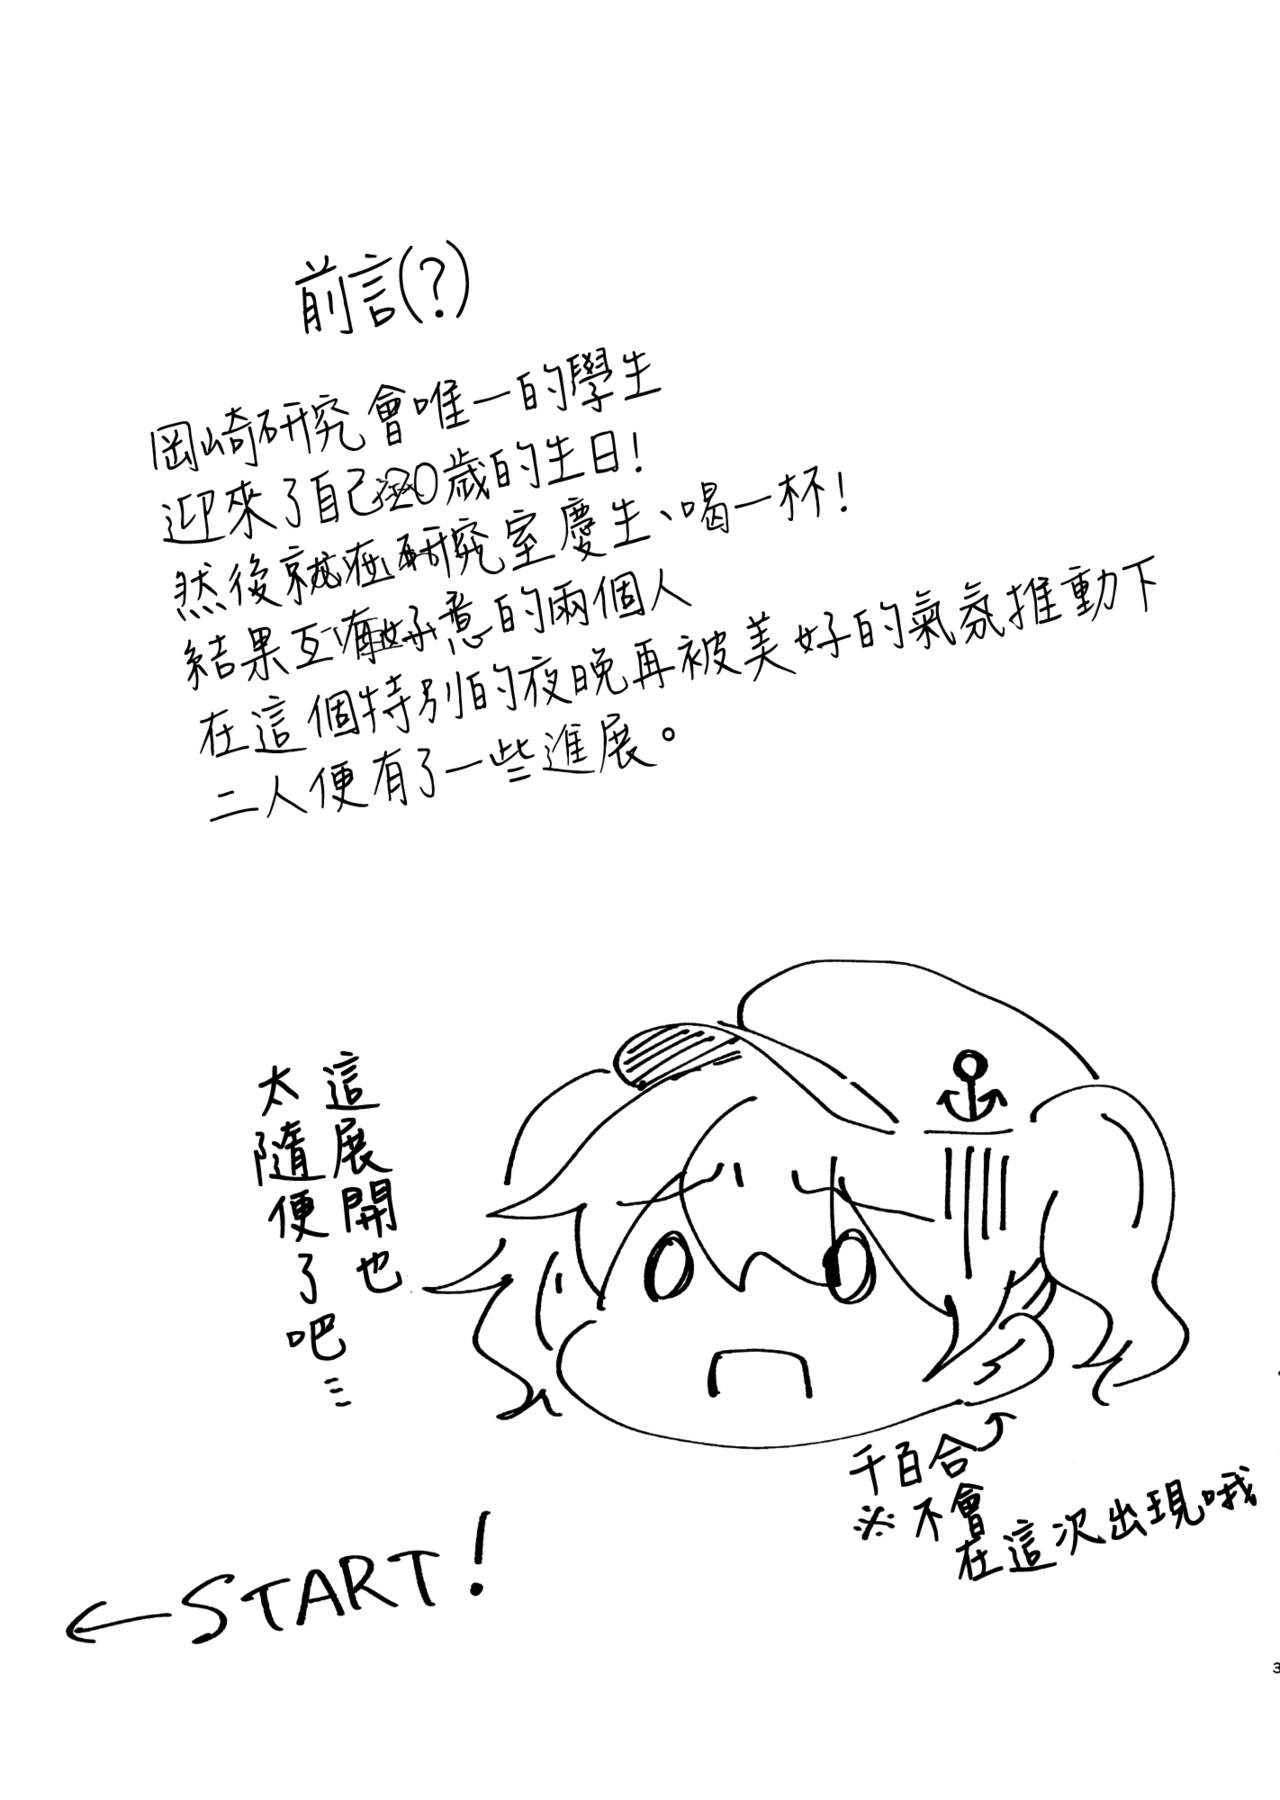 前言(?)
岡崎研究會唯一的學生
迎來了自己20歲的生日!
然後就在研究室慶生、喝一杯!
結果互有好意的兩個人
在這個特別的夜晚再被美好的氣氛推動下
二人便有了一些進展。
這展開也
太隨便了吧…
千百合
※不會
在這次出現哦
←START!
3